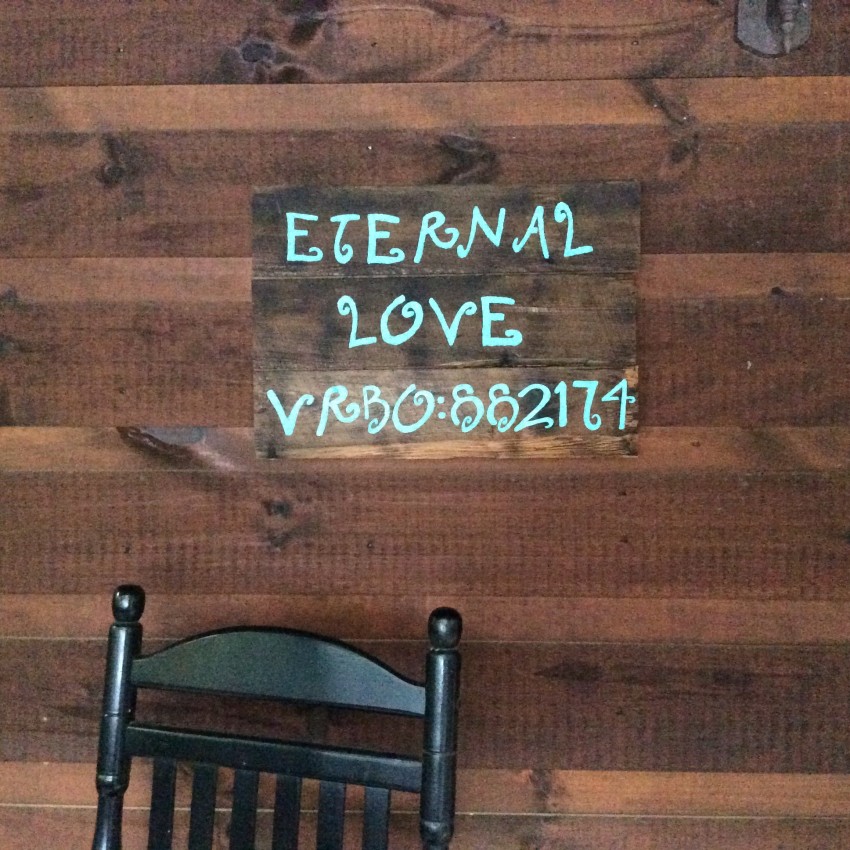 ETERNAL
LOVE
VRBO:882174